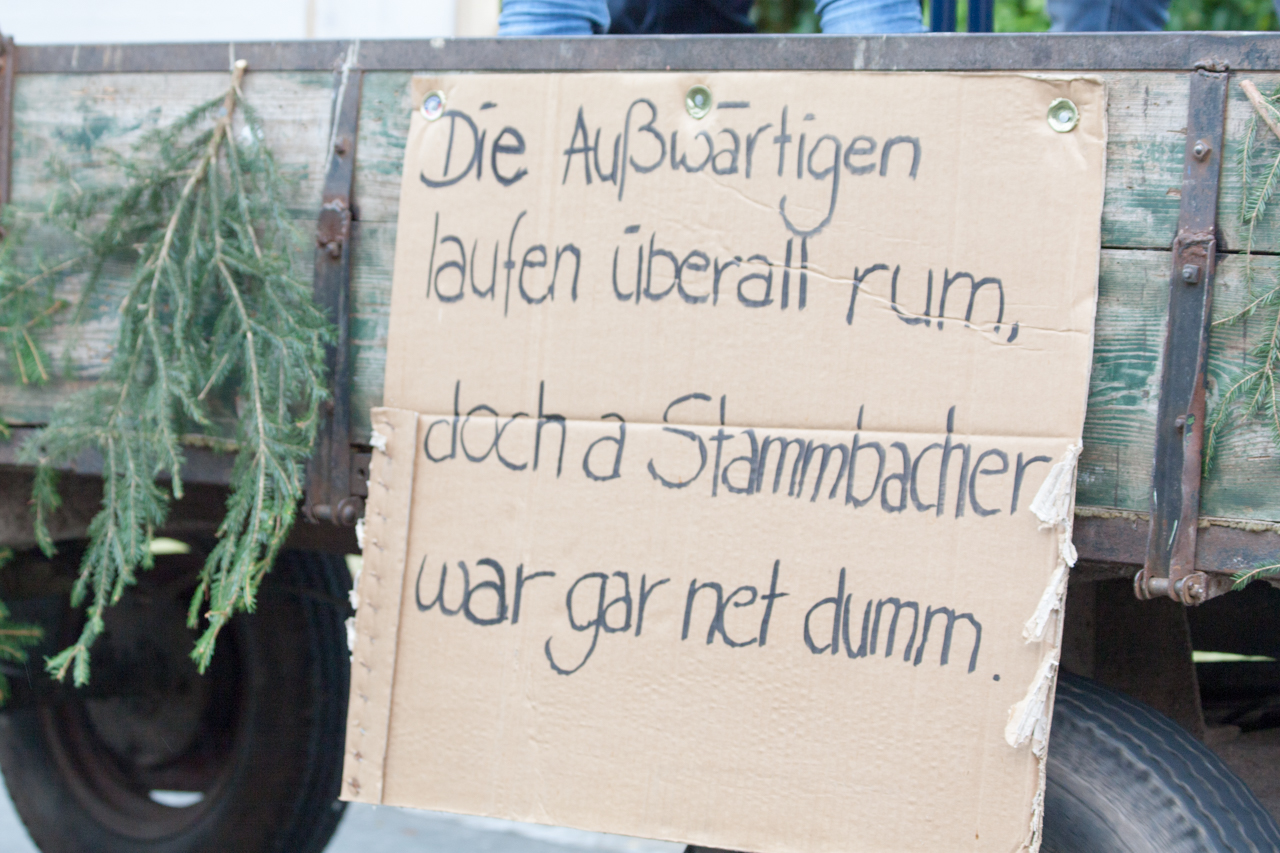 Die Außwärtigen
laufen überall rum,
doch a Stammbacher
war gar net dumm.